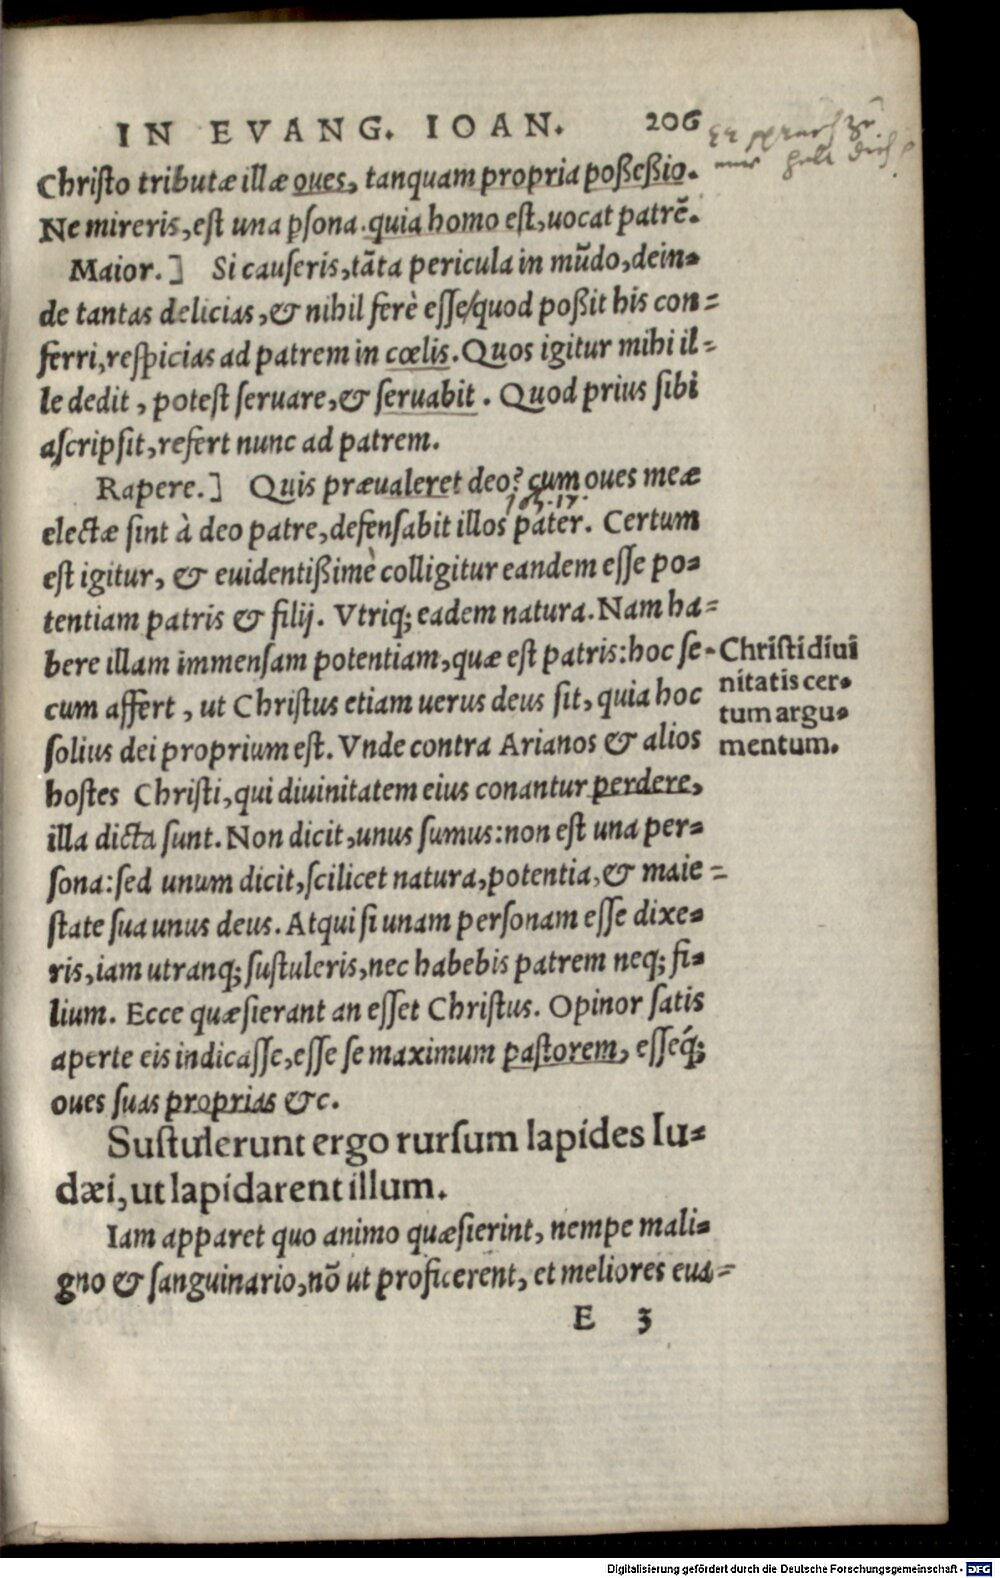 IN EVANG. IOAN. 206
Christo tributæ illæ oues, tanquam propria poßeßio.
Ne mireris, est una ꝑsona. quia homo est, uocat patrẽ.
Maior.] Si causeris, tãta pericula in mũdo, dein=
de tantas delicias, & nihil ferè esse/quod poßit his con=
ferri, respicias ad patrem in cœlis. Quos igitur mihi il=
le dedit, potest seruare, & seruabit. Quod prius sibi
ascripsit, refert nunc ad patrem.
Rapere.] Quis præualeret deo? cum oues meæ
electæ sint à deo patre, defensabit illos pater. Certum
est igitur, & euidentißimè colligitur eandem esse po=
tentiam patris & filij. Vtriq; eadem natura. Nam ha=
bere illam immensam potentiam, quæ est patris: hoc se=
cum affert, ut Christus etiam uerus deus sit, quia hoc
solius dei proprium est. Vnde contra Arianos & alios
hostes Christi, qui diuinitatem eius conantur perdere,
illa dicta sunt. Non dicit, unus sumus: non est una per=
sona: sed unum dicit, scilicet natura, potentia, & maie=
state sua unus deus. Atqui si unam personam esse dixe=
ris, iam utranq; sustuleris, nec habebis patrem neq; fi=
lium. Ecce quæsierant an esset Christus. Opinor satis
aperte eis indicasse, esse se maximum pastorem, esseq́;
oues suas proprias &c.
Sustulerunt ergo rursum lapides Iu=
dæi, ut lapidarent illum.
Iam apparet quo animo quæsierint, nempe mali=
gno & sanguinario, nõ ut proficerent, et meliores eua=
E 3
Christi diui
nitatis cer=
tum argu=
mentum.
Digitalisierung gefördert durch die Deutsche Forschungsgemeinschaft - DFG